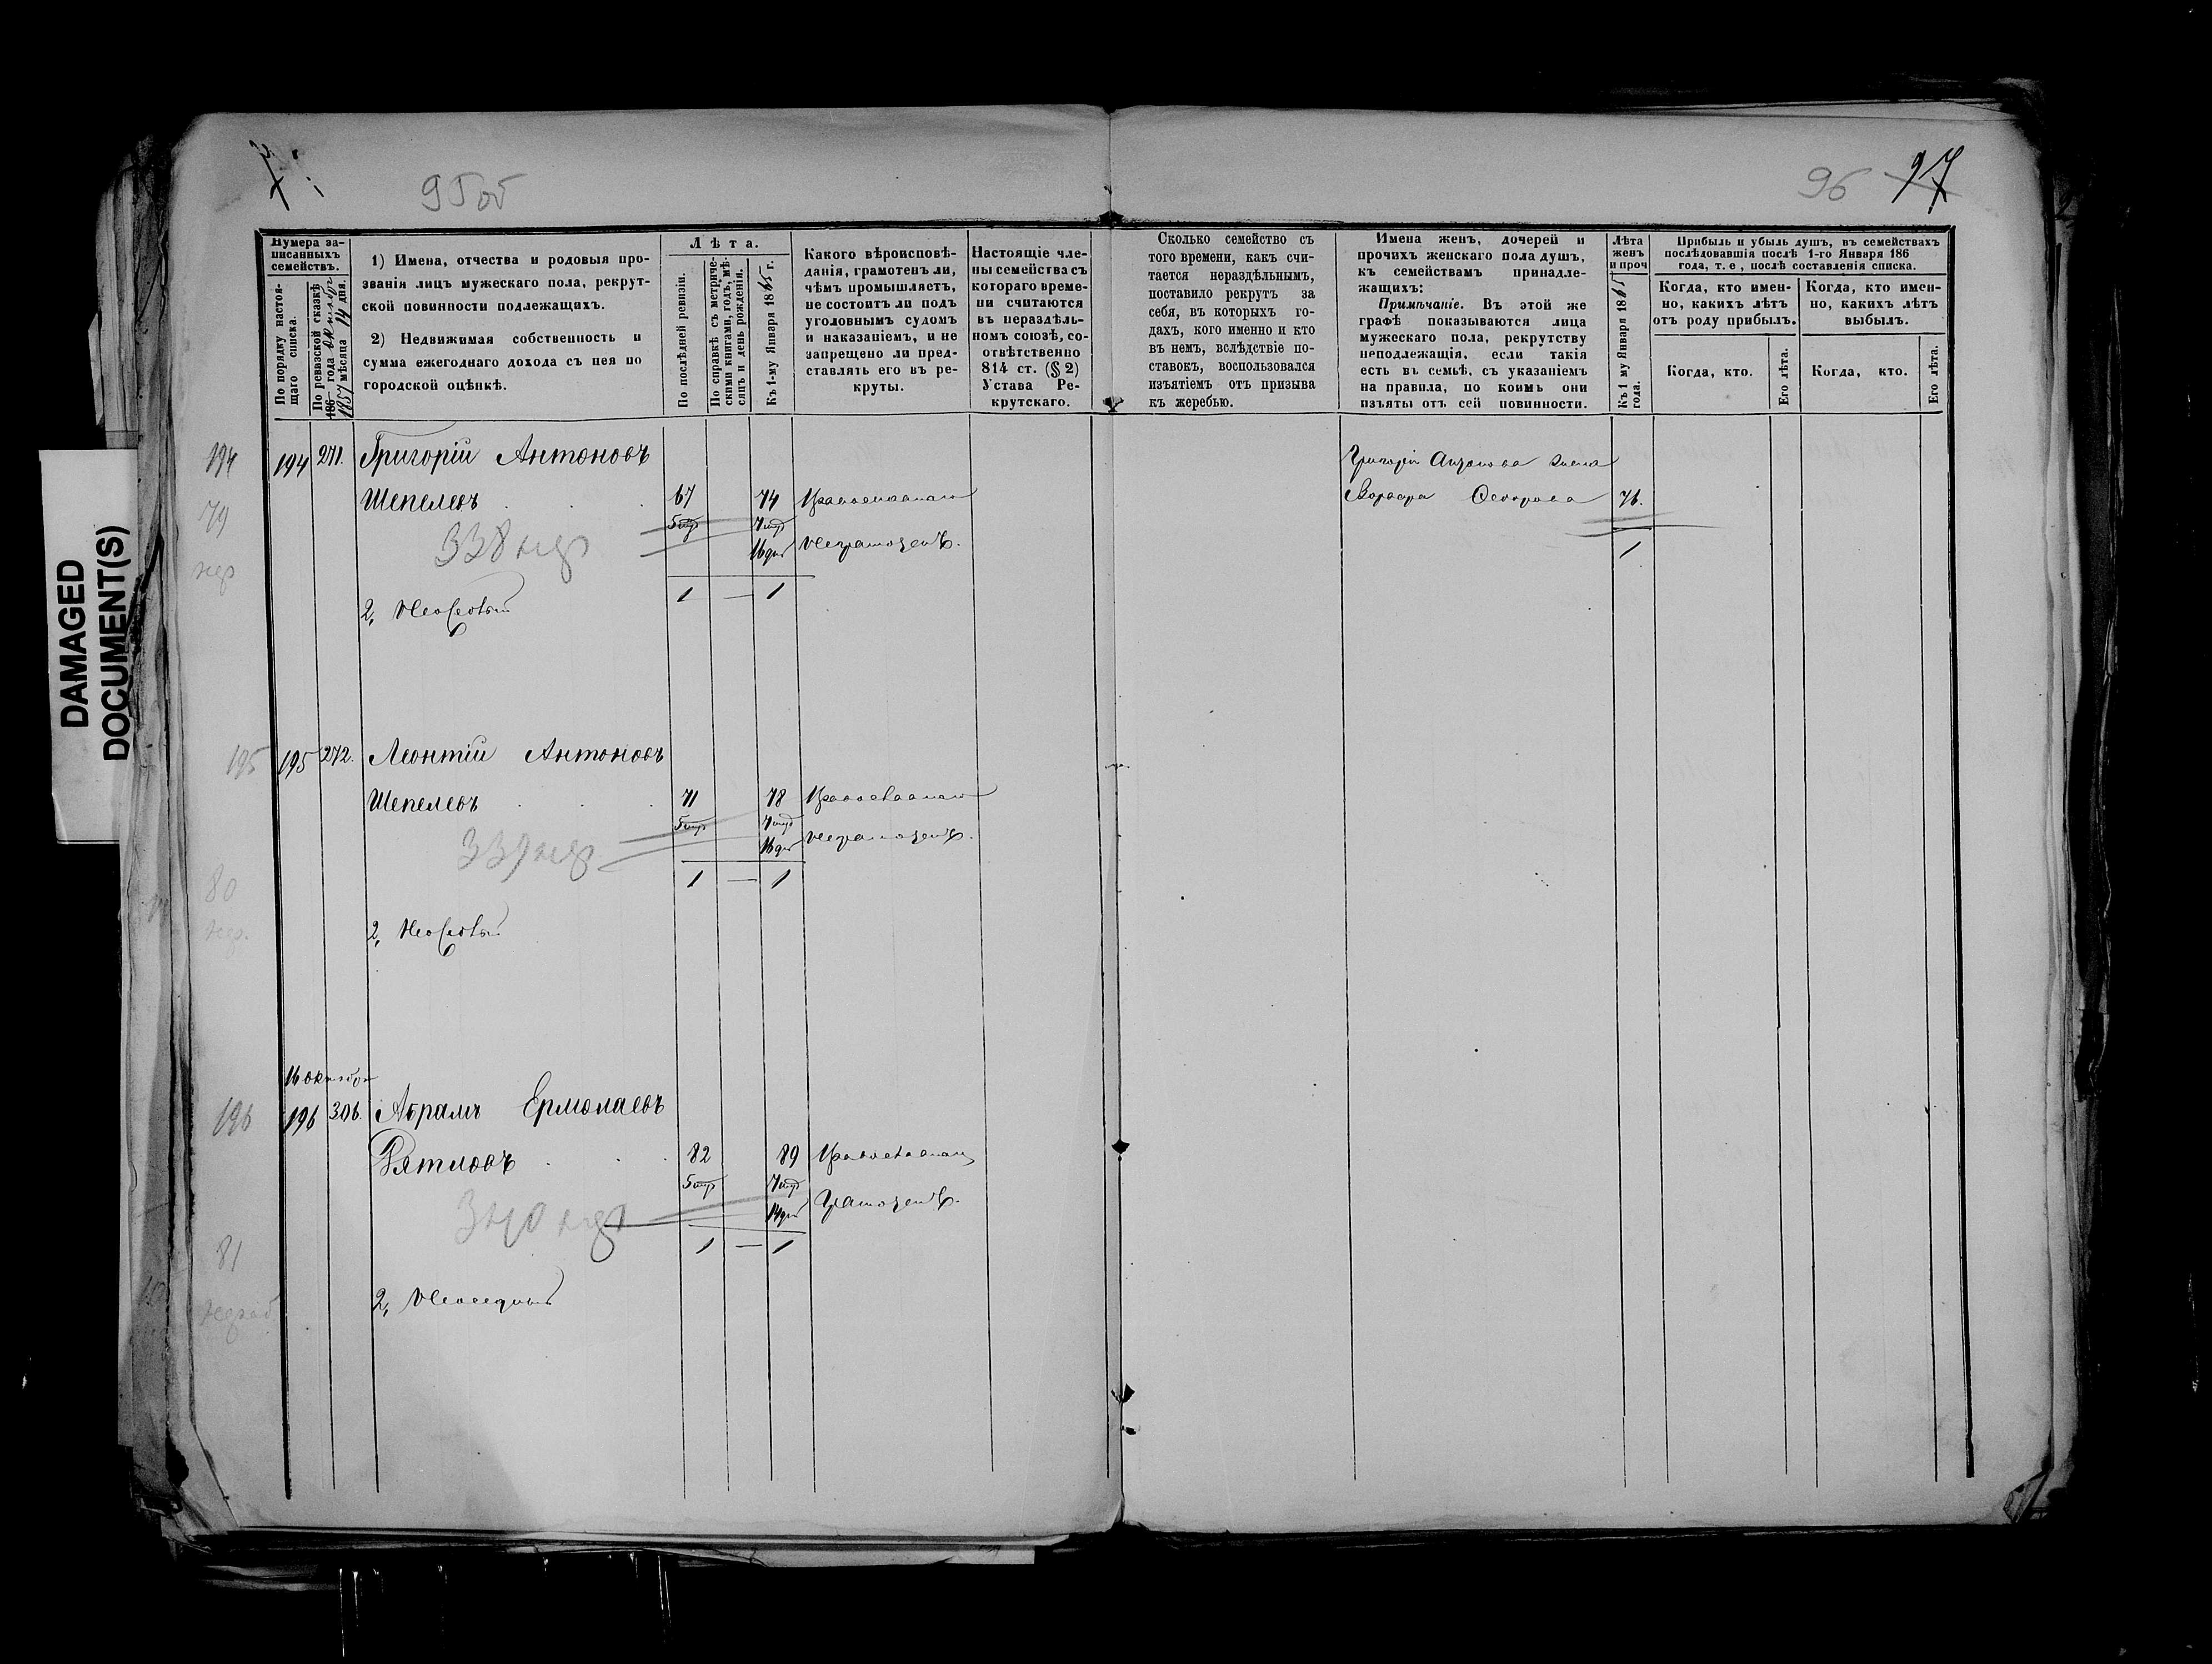 95об
96 97
DAMAGED
DOCUMENT(S)
Нумера за-
писанныхъ
семействъ.
По порядку настоя-
щаго списка.
По ревизской сказкѣ
186 года Октября
1857 мѣсяца 14 дня.
1) Имена, отчества и родовыя про-
званія лицъ мужескаго пола, рекрут-
ской повинности подлежащихъ.
2) Недвижимая собственность и
сумма ежегоднаго дохода съ нея по
городской оцѣнкѣ.
Лѣта.
По послѣдней ревизіи.
По справкѣ съ метриче-
скими книгами, годъ, мѣ-
сяцъ и день рожденія.
Къ 1-му Января 1865 г.
Какого вѣроисповѣ-
данія, грамотенъ ли,
чѣмъ промышляетъ,
не состоитъ ли подъ
уголовнымъ судомъ
и наказаніемъ, и не
запрещено ли пред-
ставлять его въ ре-
круты.
Настоящіе чле-
ны семейства съ
котораго време-
ни считаются
въ нераздѣль-
номъ союзѣ, со-
отвѣтственно
814 ст. (§ 2)
Устава Ре-
крутскаго.
Сколько семейство съ
того времени, какъ счи-
тается нераздѣльнымъ,
поставило рекрутъ за
себя, въ которыхъ го-
дахъ, кого именно и кто
въ немъ, вслѣдствіе по-
ставокъ, воспользовался
изъятіемъ отъ призыва
къ жеребью.
Имена женъ, дочерей и
прочихъ женскаго пола душъ,
къ семействамъ принадле-
жащихъ:
Примѣчаніе. Въ этой же
графѣ показываются лица
мужескаго пола, рекрутству
неподлежащія, если такія
есть въ семьѣ, съ указаніемъ
на правила, по коимъ они
изъяты отъ сей повинности.
Лѣта
женъ
и проч
Къ 1 му Января 1865
года.
Прибыль и убыль душъ, въ семействахъ
послѣдовавшія послѣ 1-го Января 186
года, т. е, послѣ составленія списка.
Когда, кто имен-
но, какихъ лѣтъ
отъ роду прибылъ.
Когда, кто имен-
но, какихъ лѣтъ
выбылъ.
Когда, кто.
Его лѣта.
Когда, кто.
Его лѣта.
194 194 271. Григорій Антоновъ
Григорія Антонова жена
Шепелевъ 67 74 Православнаго
Варвара 76.
79
338
16 дней Неграмотенъ.
1
1 — 1
2,
195 195 272. Леонтій Антоновъ
Шепелевъ 71 78 Православнаго
339
16 дней Неграмотенъ.
1 — 1
80
2,
16 октября
196 196 306. Абрамъ Ермолаевъ
Вятловъ 82 89 Православнаго
340
14 дней Грамотенъ.
1 — 1
81
2,